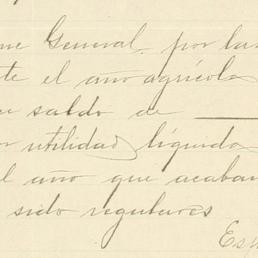 me General por las
te el ano agricola
saldo de
utilidad liquida
l año que acaban
sido regulares
Esp